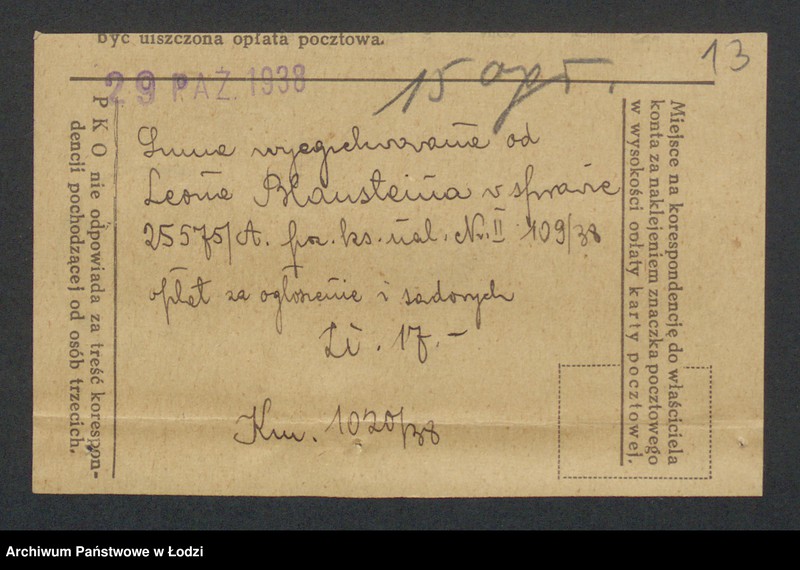 być uiszczona opłata pocztowa.
13
29 PAŹ. 1938
15 opł.
Suma wyegzekwowana od
Leona Blausteina w sprawie
25575/A. poz. ks. nal. Nr. II 109/38
opłat za ogłoszenie i sądowych
Zł. 17.-
Km. 1020/38
P K O nie odpowiada za treść korespon-
dencji pochodzącej od osób trzecich.
Miejsce na korespondencję do właściciela
konta za naklejeniem znaczka pocztowego
w wysokości opłaty karty pocztowej.
Archiwum Państwowe w Łodzi